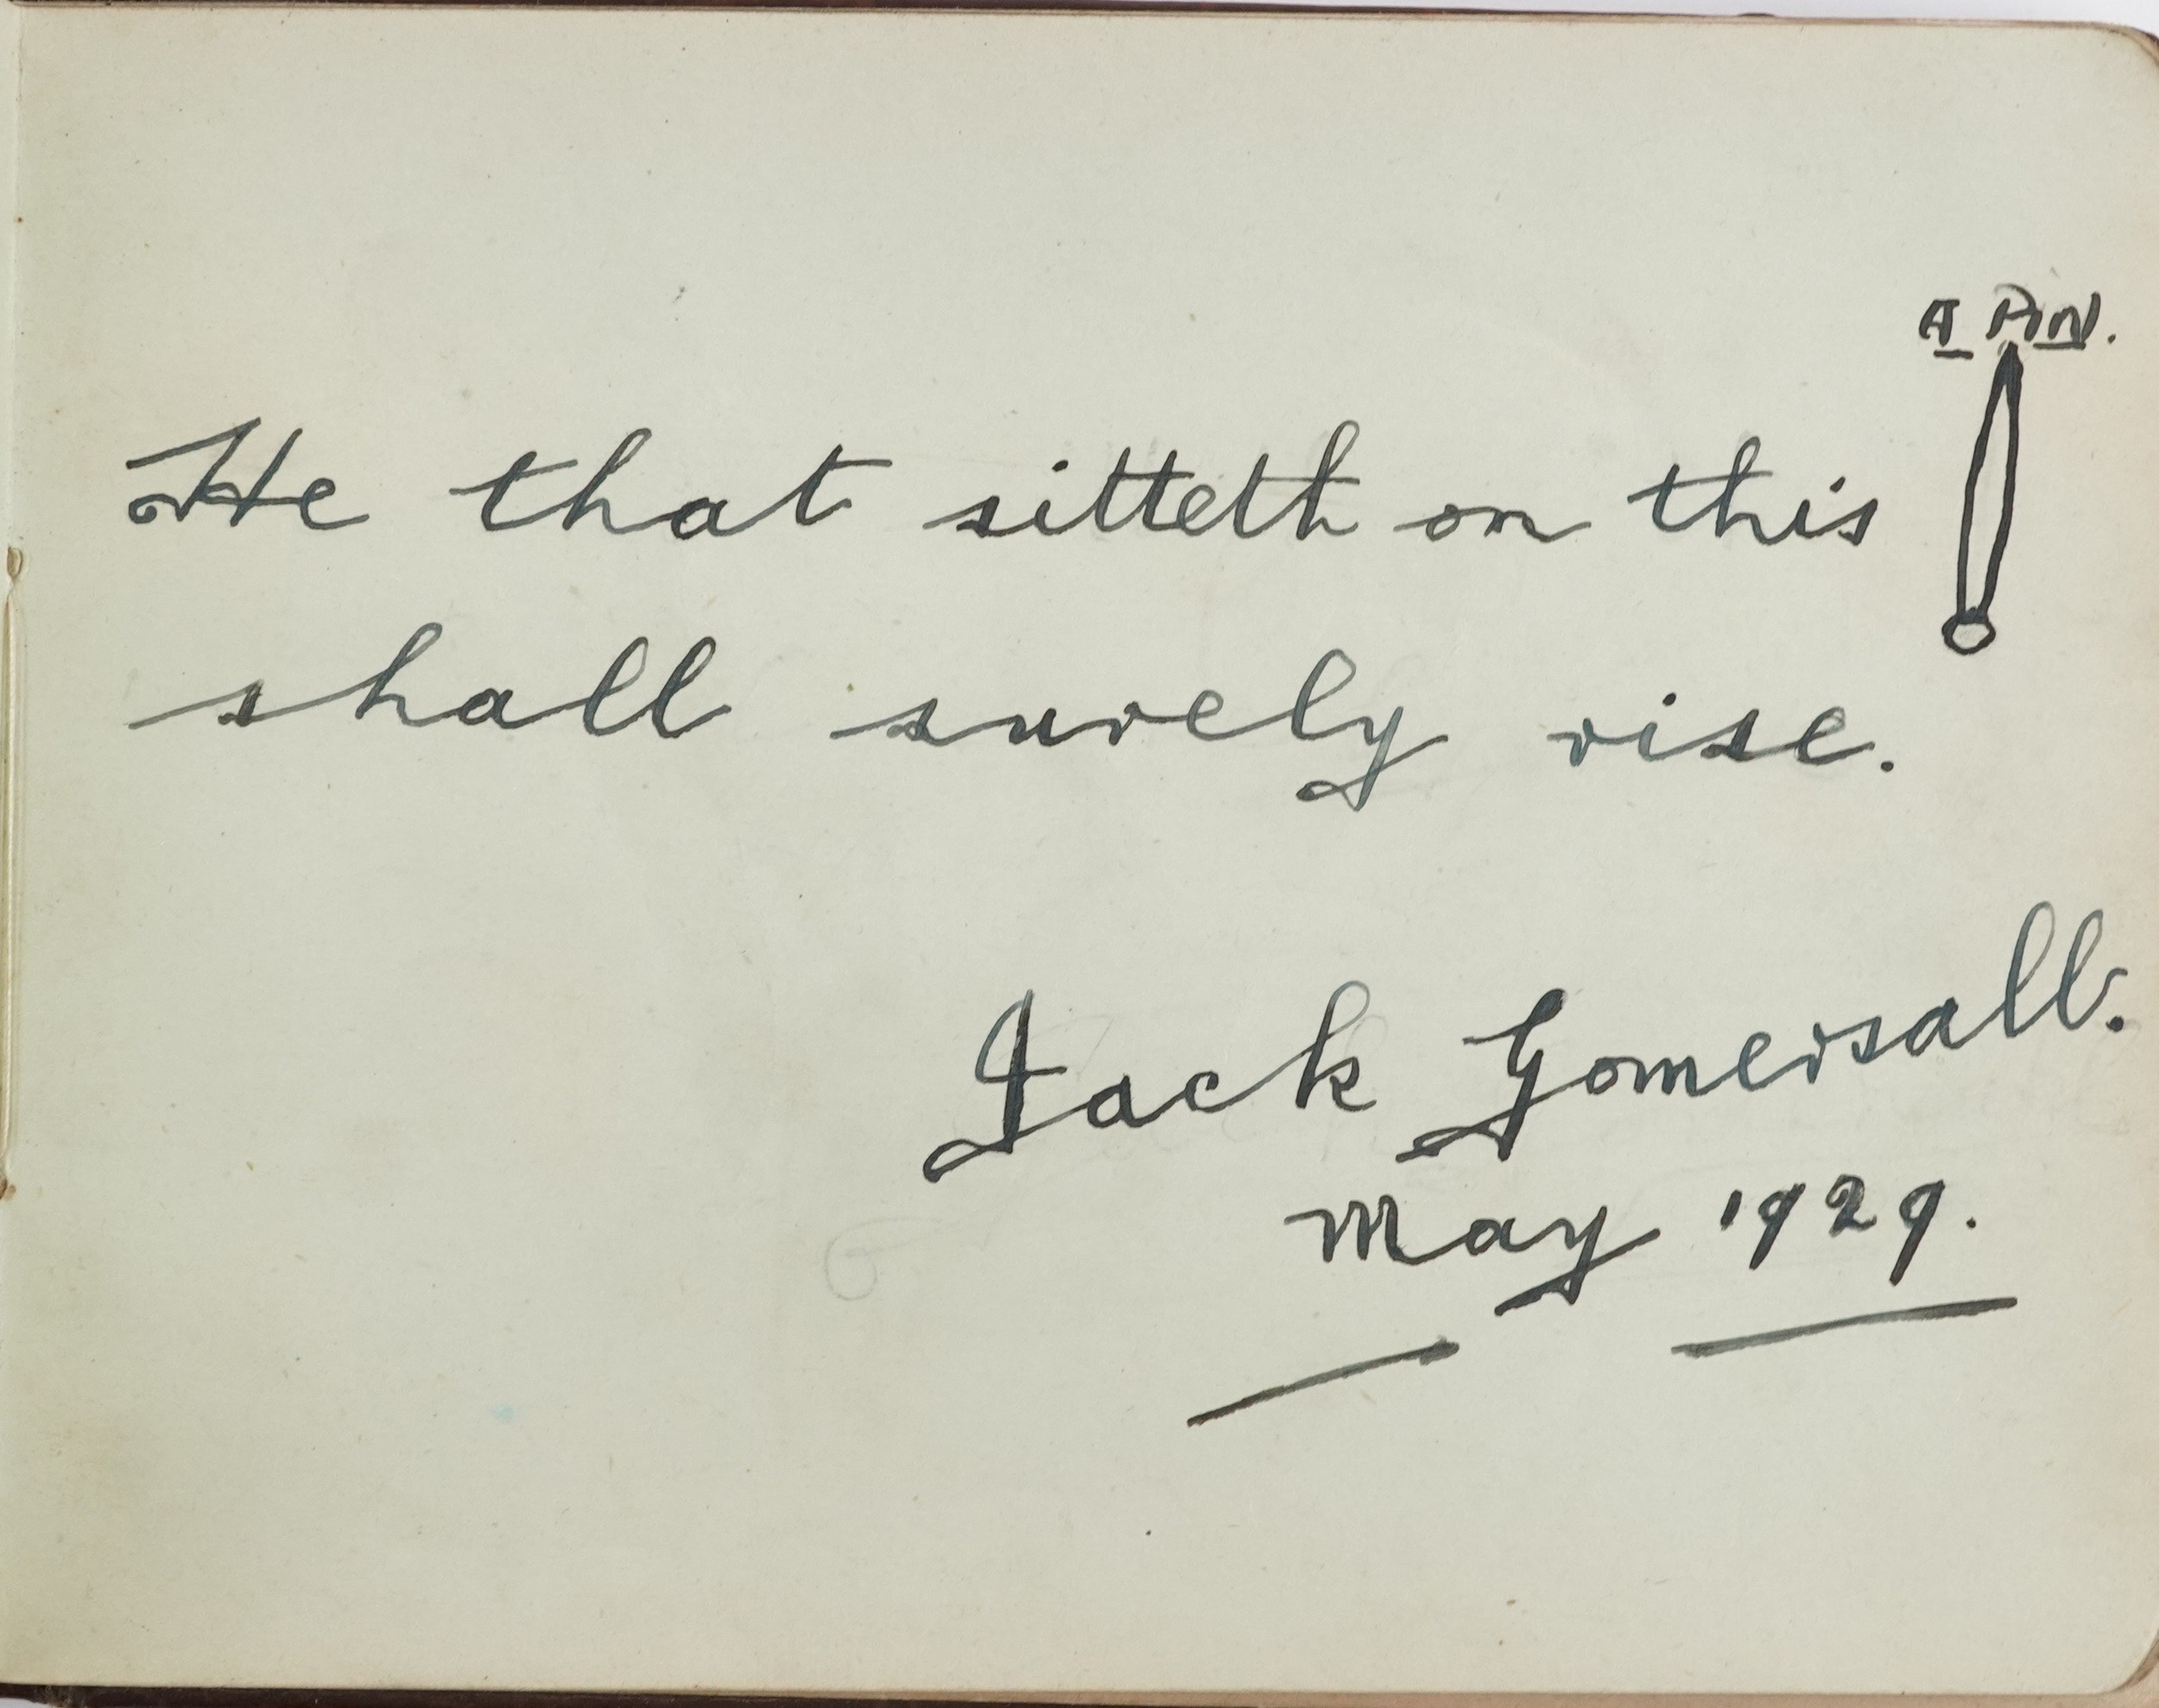 A PIN.
He that sitteth on this
shall surely rise.
Jack Gomersall.
May 1929.